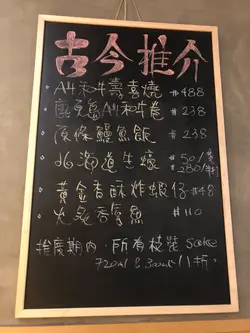 古今推介
A4和牛壽喜燒 #488
鹿兒島A4和牛卷 #238
原條鰻魚飯 #238
北海道生蠔 #50/隻
#280/半打
黃金香酥炸蝦仔 #48
香魚 #110
推廣期內，所有枝裝 Sake
720ml & 300ml 八折